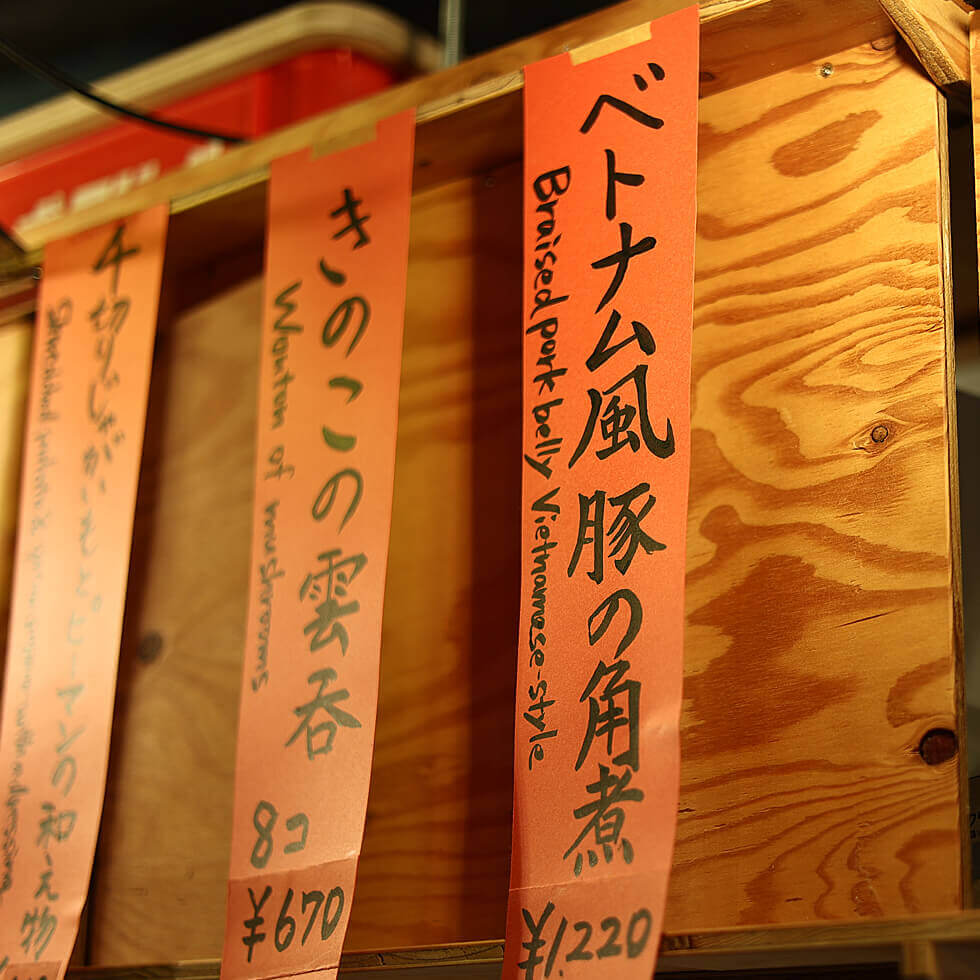 ベトナム風豚の角煮
Braised pork belly Vietnamese-style
¥1.220
きのこの雲呑
Wonton of mushrooms
8コ
¥670
千切りじゃがいもとピーマンの和え物
Shredded